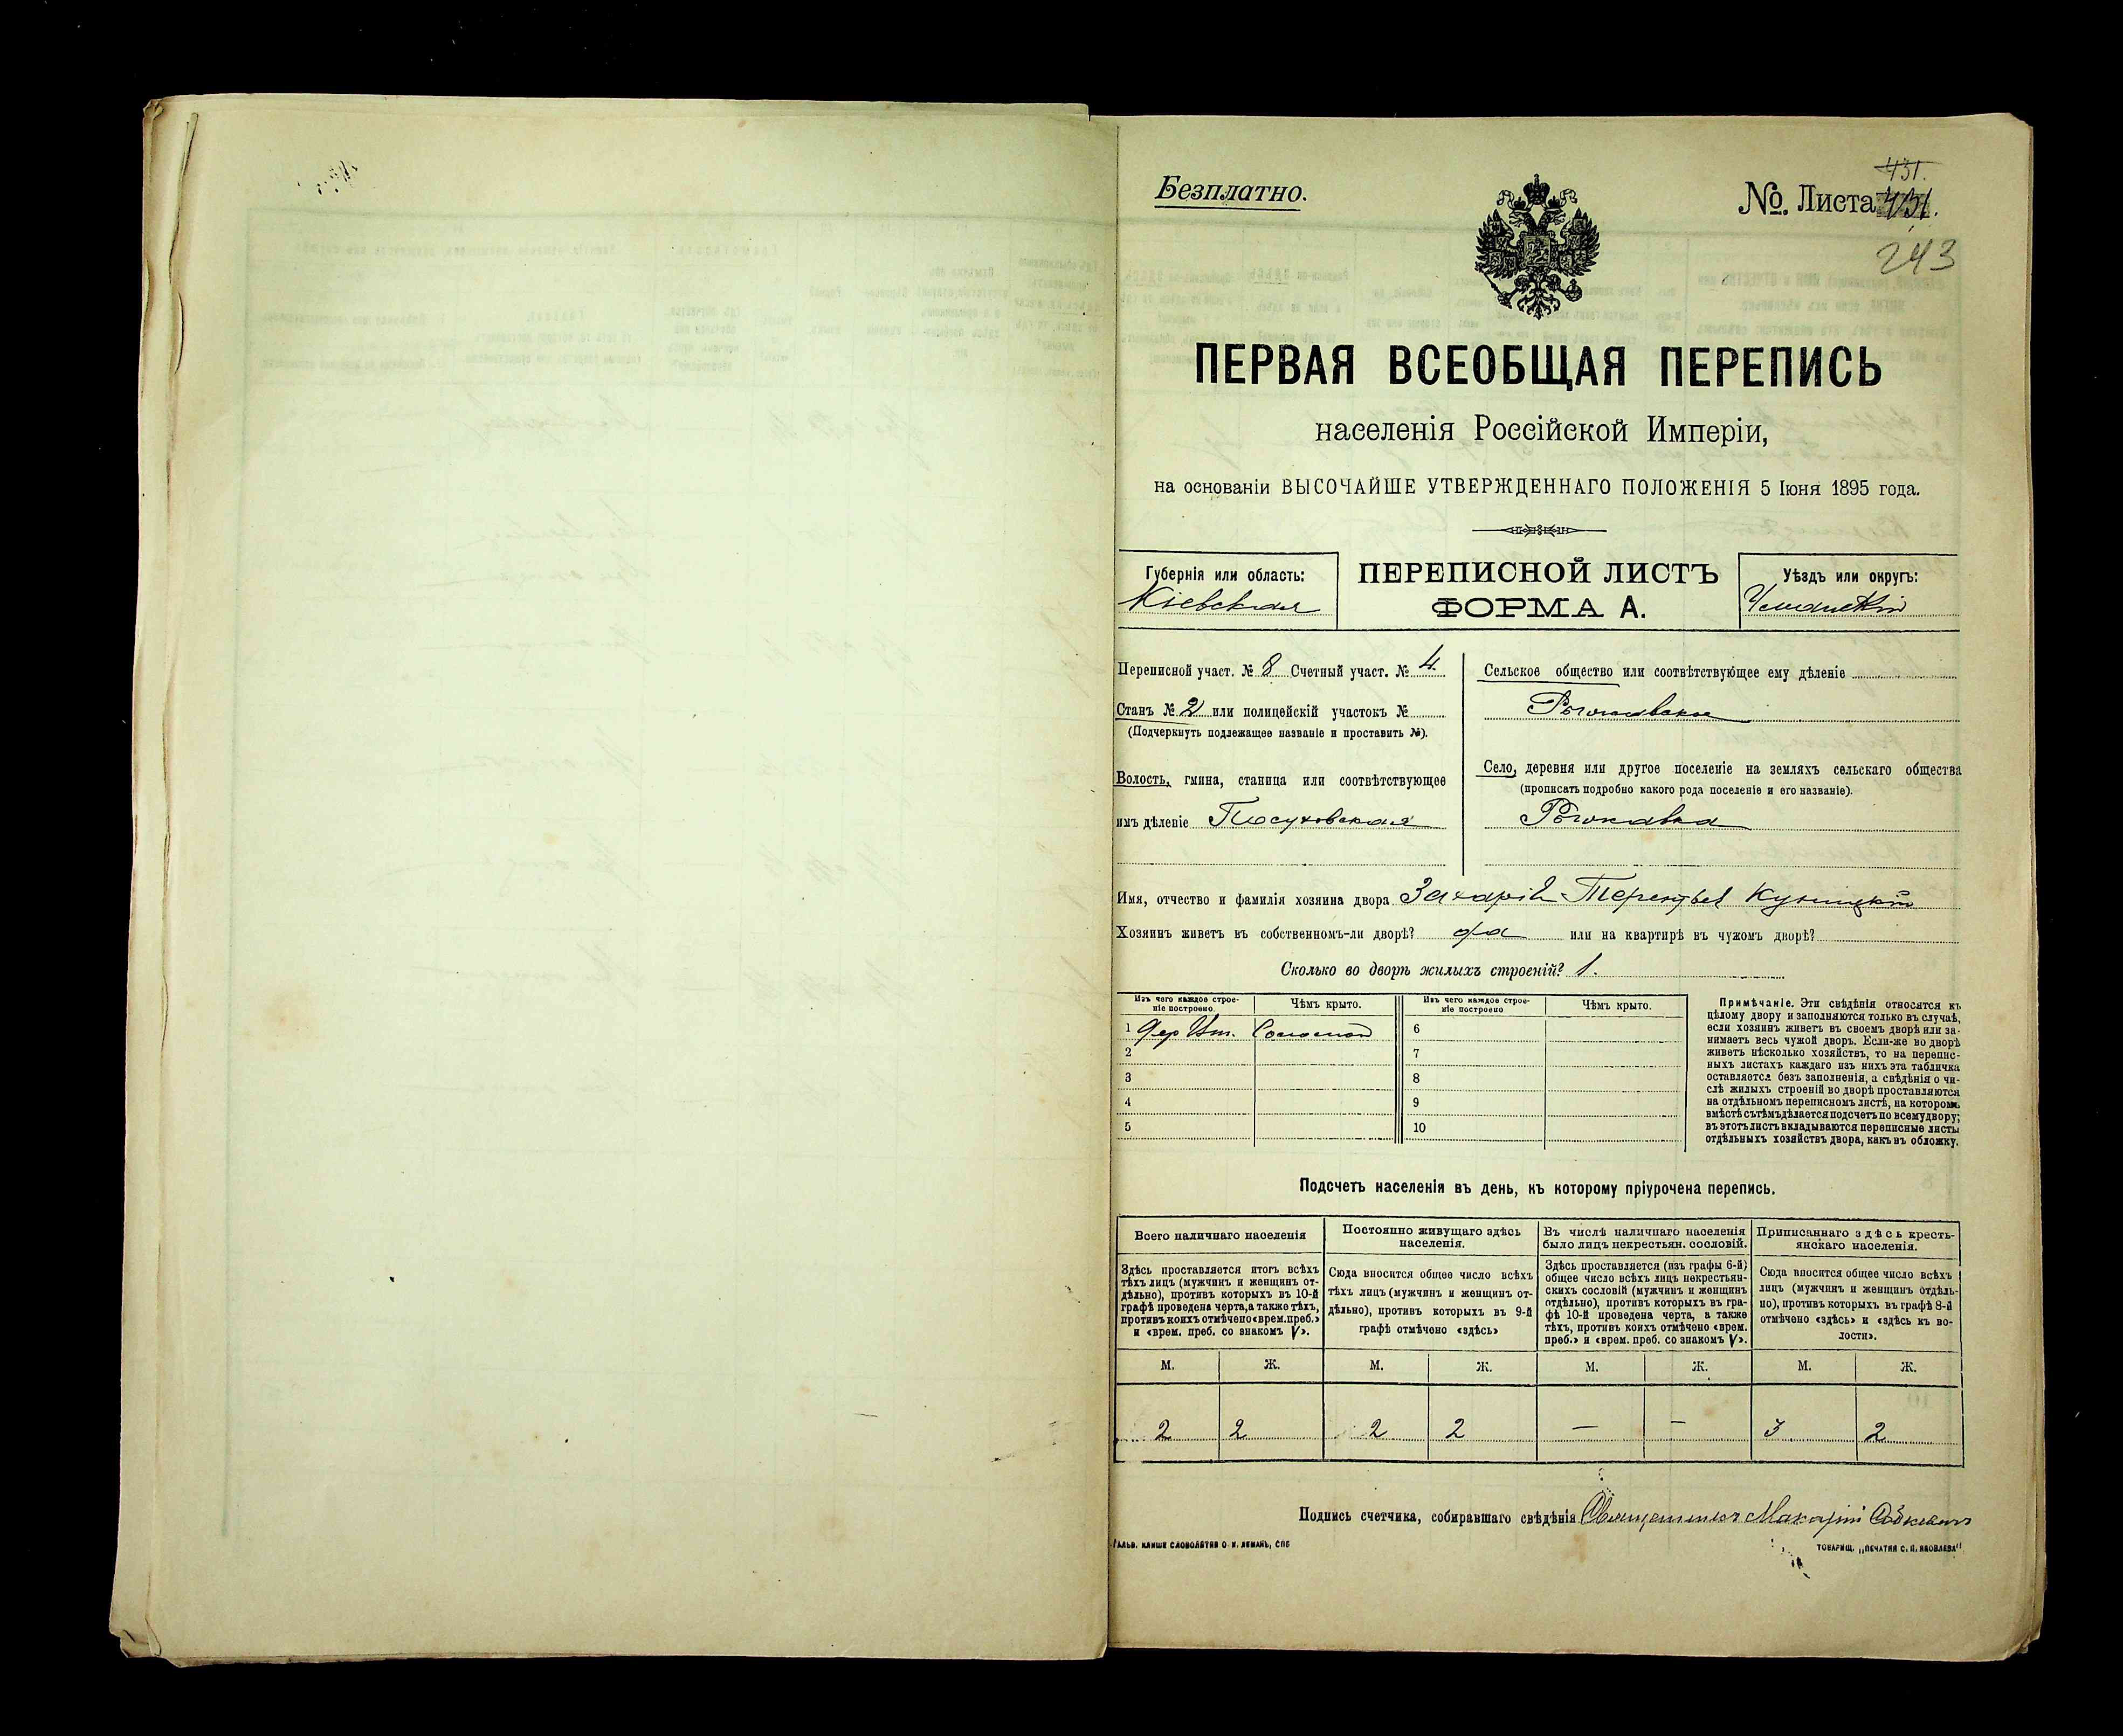 431.
Безплатно.
№ Листа 431.
243
ПЕРВАЯ ВСЕОБЩАЯ ПЕРЕПИСЬ
населенія Россійской Имперіи,
на основаніи ВЫСОЧАЙШЕ УТВЕРЖДЕННАГО ПОЛОЖЕНІЯ 5 Іюня 1895 года.
Губернія или область:
Кіевская
ПЕРЕПИСНОЙ ЛИСТЪ
ФОРМА А.
Уѣздъ или округъ:
Уманскій
Переписной участ. № 8 Счетный участ. № 4
Станъ № 2 или полицейскій участокъ №
(Подчеркнуть подлежащее названіе и проставить №).
Волость, гмина, станица или соотвѣтствующее
имъ дѣленіе Посуховская
Сельское общество или соотвѣтствующее ему дѣленіе
Рыжавское
Село, деревня или другое поселеніе на земляхъ сельскаго общества
(прописать подробно какого рода поселеніе и его названіе).
Имя, отчество и фамилія хозяина двора Захарій Терентьев Куницкій
Хозяинъ живетъ въ собственномъ-ли дворѣ? да или на квартирѣ въ чужомъ дворѣ?
Сколько во дворѣ жилыхъ строеній? 1.
Изъ чего каждое строе-
ніе построено.
Чѣмъ крыто.
Изъ чего каждое строе-
ніе построено
Чѣмъ крыто.
1 дер Соломой 6
2 7
3 8
4 9
5 10
Примѣчаніе. Эти свѣдѣнія относятся къ
цѣлому двору и заполняются только въ случаѣ,
если хозяинъ живетъ въ своемъ дворѣ или за-
нимаетъ весь чужой дворъ. Если-же во дворѣ
живетъ нѣсколько хозяйствъ, то на перепис-
ныхъ листахъ каждаго изъ нихъ эта табличка
оставляется безъ заполненія, а свѣдѣнія о чи-
слѣ жилыхъ строеній во дворѣ проставляются
на отдѣльномъ переписномъ листѣ, на которомъ
вмѣстѣ съ тѣмъ дѣлается подсчетъ по всему двору;
въ этотъ листъ вкладываются переписные листы
отдѣльныхъ хозяйствъ двора, какъ въ обложку.
Подсчетъ населенія въ день, къ которому пріурочена перепись.
Всего наличнаго населенія
Здѣсь проставляется итогъ всѣхъ
тѣхъ лицъ (мужчинъ и женщинъ от-
дѣльно), противъ которыхъ въ 10-й
графѣ проведена черта, а также тѣхъ,
противъ коихъ отмѣчено «врем. преб.»
и «врем. преб. со знакомъ V».
Постоянно живущаго здѣсь
населенія.
Сюда вносится общее число всѣхъ
тѣхъ лицъ (мужчинъ и женщинъ от-
дѣльно), противъ которыхъ въ 9-й
графѣ отмѣчено «здѣсь»
Въ числѣ наличнаго населенія
было лицъ некрестьян. сословій.
Здѣсь проставляется (изъ графы 6-й)
общее число всѣхъ лицъ некрестьян-
скихъ сословій (мужчинъ и женщинъ
отдѣльно), противъ которыхъ въ гра-
фѣ 10-й проведена черта, а также
тѣхъ, противъ коихъ отмѣчено «врем.
преб.» и «врем. преб. со знакомъ V».
Приписаннаго здѣсь кресть-
янскаго населенія.
Сюда вносится общее число всѣхъ
лицъ (мужчинъ и женщинъ отдѣль-
но), противъ которыхъ въ графѣ 8-й
отмѣчено «здѣсь» и «здѣсь къ во-
лости».
М. Ж. М. Ж. М. Ж. М. Ж.
2 2 2 2 — — 3 2
Подпись счетчика, собиравшаго свѣдѣнія Священникъ Макарій
ГАЛЬВ. КЛИШЕ СЛОВОЛИТНИ О. И. ЛЕМАНЪ, СПБ
ТОВАРИЩ. „ПЕЧАТНЯ С. П. ЯКОВЛЕВА"